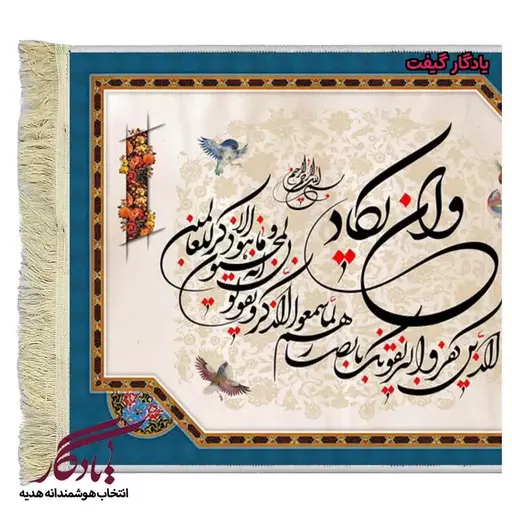 یادگار گیفت
بسم الله الرحمن الرحیم
وان یکاد
الذین کفروا لیزلقونک بابصارهم
لما سمعوا الذکر و یقولون
انه لمجنون
و ما هو الا ذکر للعالمین
یادگار
انتخاب هوشمندانه هدیه